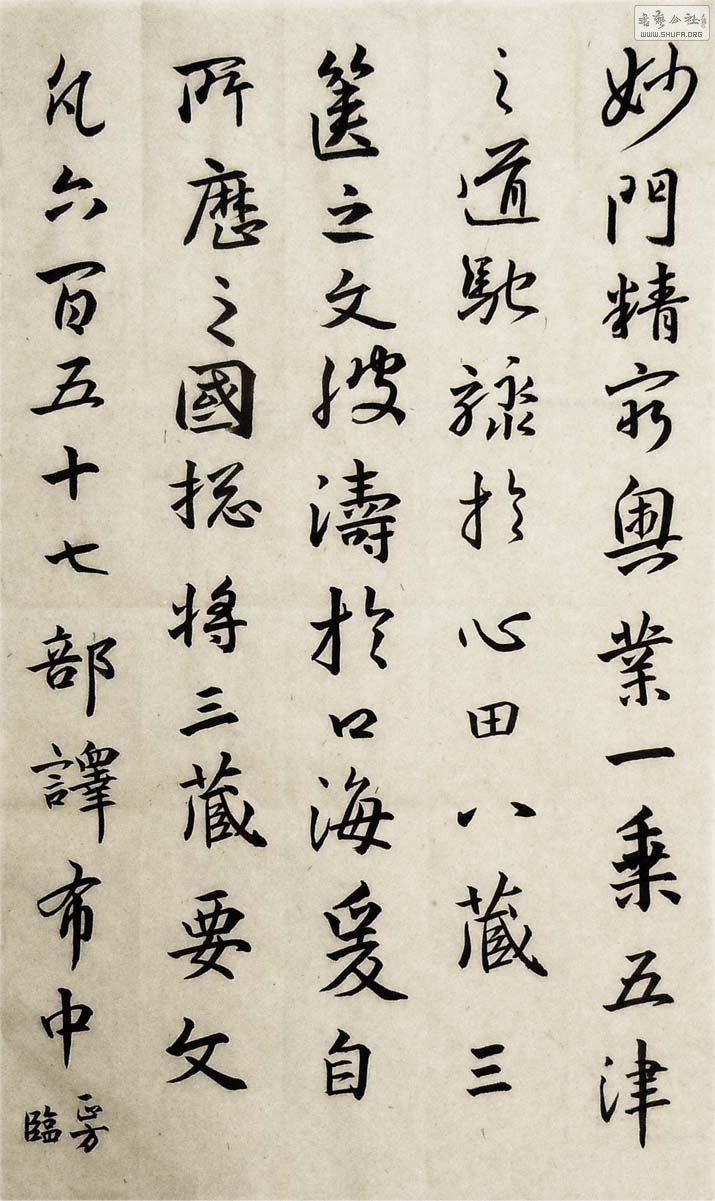 妙門精窮奥業一乗五津
之道馳驟於心田八蔵三
篋之文波濤於口海爰自
所歷之國摠将三蔵要文
凡六百五十七部譯布中
正方
臨
WWW.SHUFA.ORG